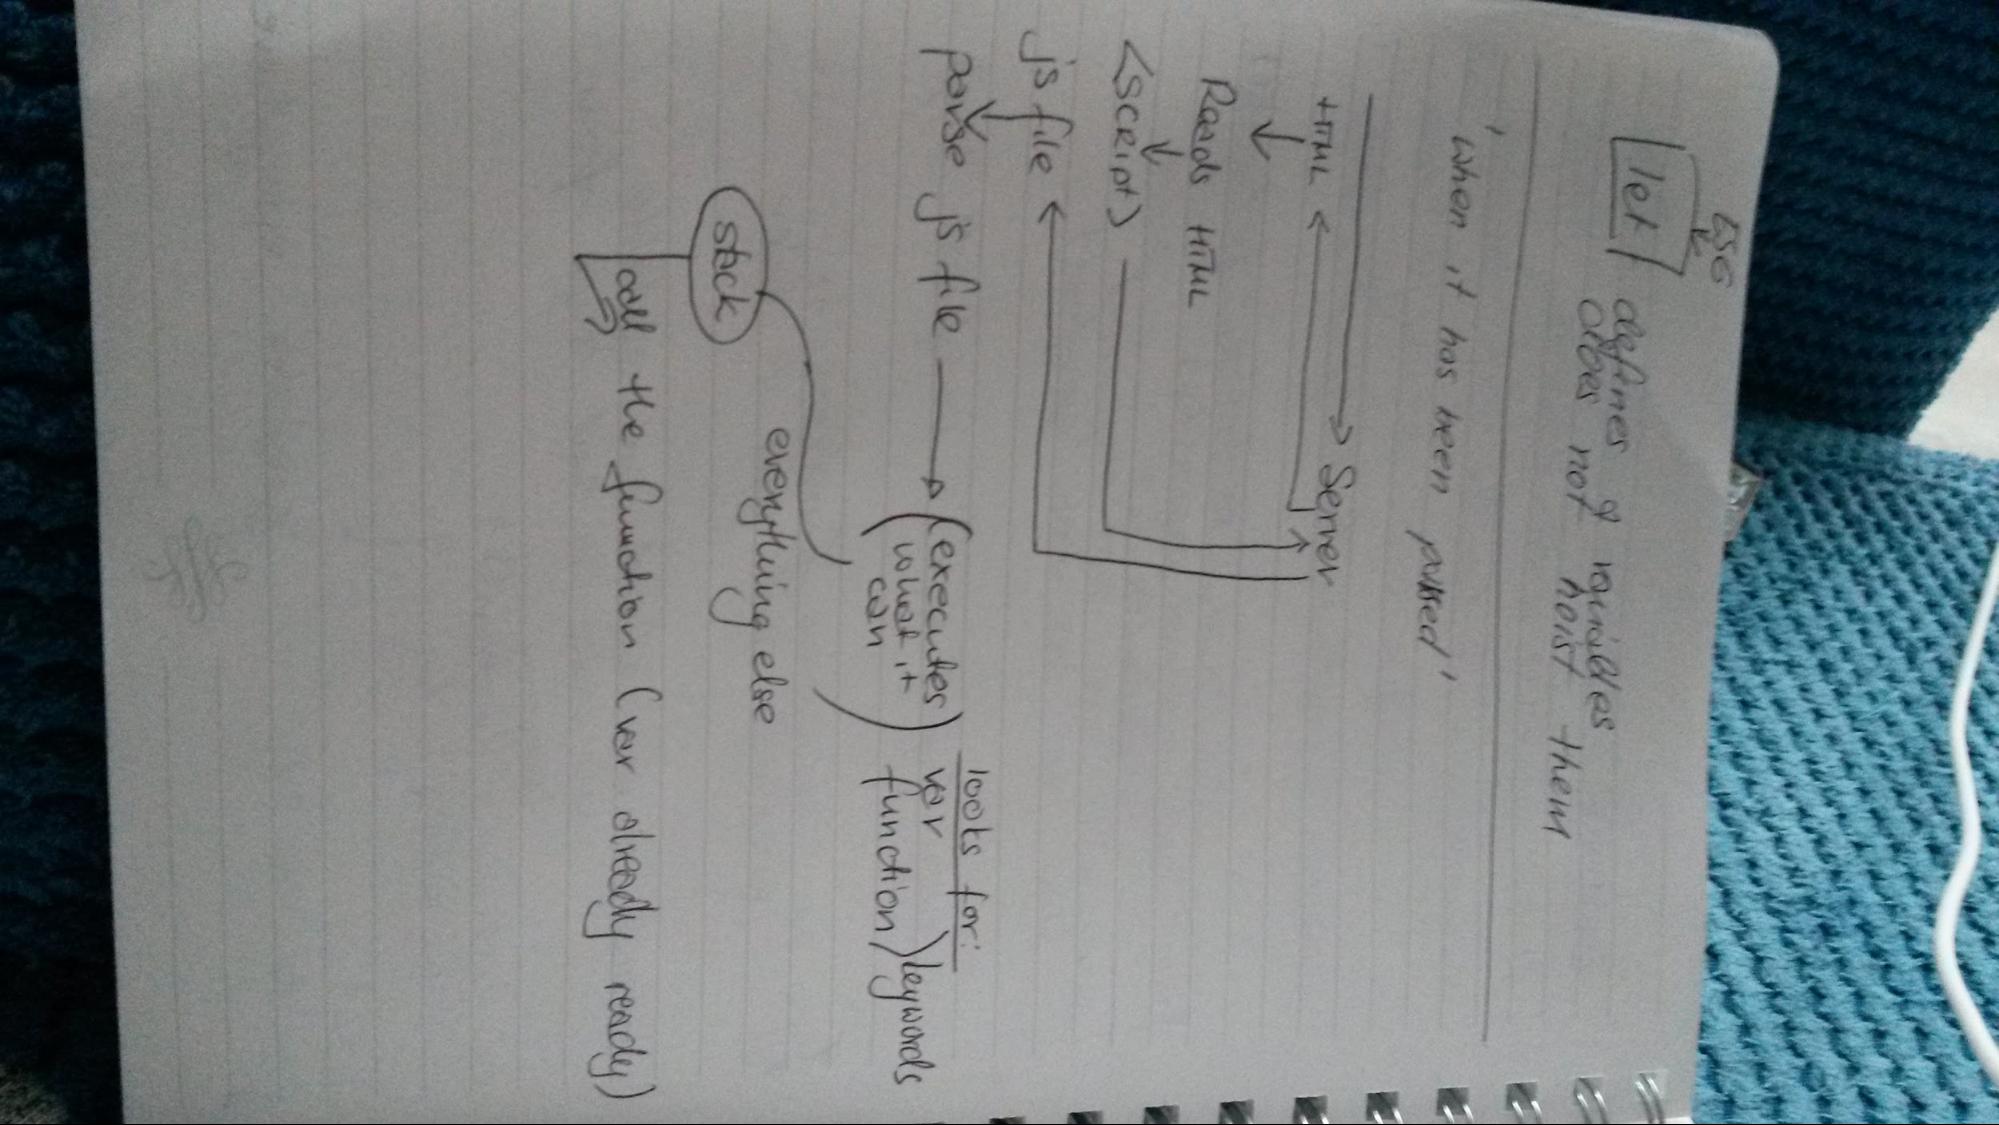 ES6
let defines variables
does not hoist them
'when it has been parsed'
HTML Server
Reads HTML
<script>
js file
parse js file (executes) looks for:
(what it can) var
function) keywords
stack everything else
call the function (var already ready)